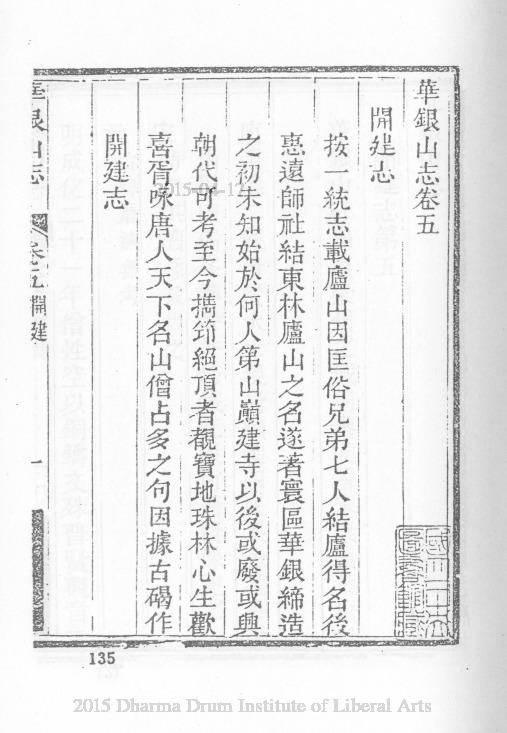 華銀山志卷五
開建志
按一統志載廬山因匡俗兄弟七人結廬得名後
惠遠師社結東林廬山之名遂著寰區華銀締造
之初未知始於何人第山巔建寺以後或廢或興
朝代可考至今攜笻絕頂者覩寶地珠林心生歡
喜胥咏唐人天下名山僧占多之句因據古碣作
開建志
華銀山志
卷五 開建
一
135
2015 Dharma Drum Institute of Liberal Arts